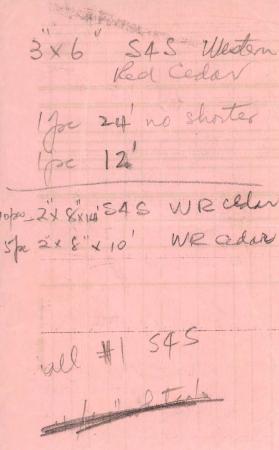 3" x 6" S4S Western
Red Cedar
1pc 24' no shorter
1pc 12'
10pc 2" x 8" x 14' S4S WR cedar
5pc 2" x 8" x 10' WR cedar
all #1 S4S